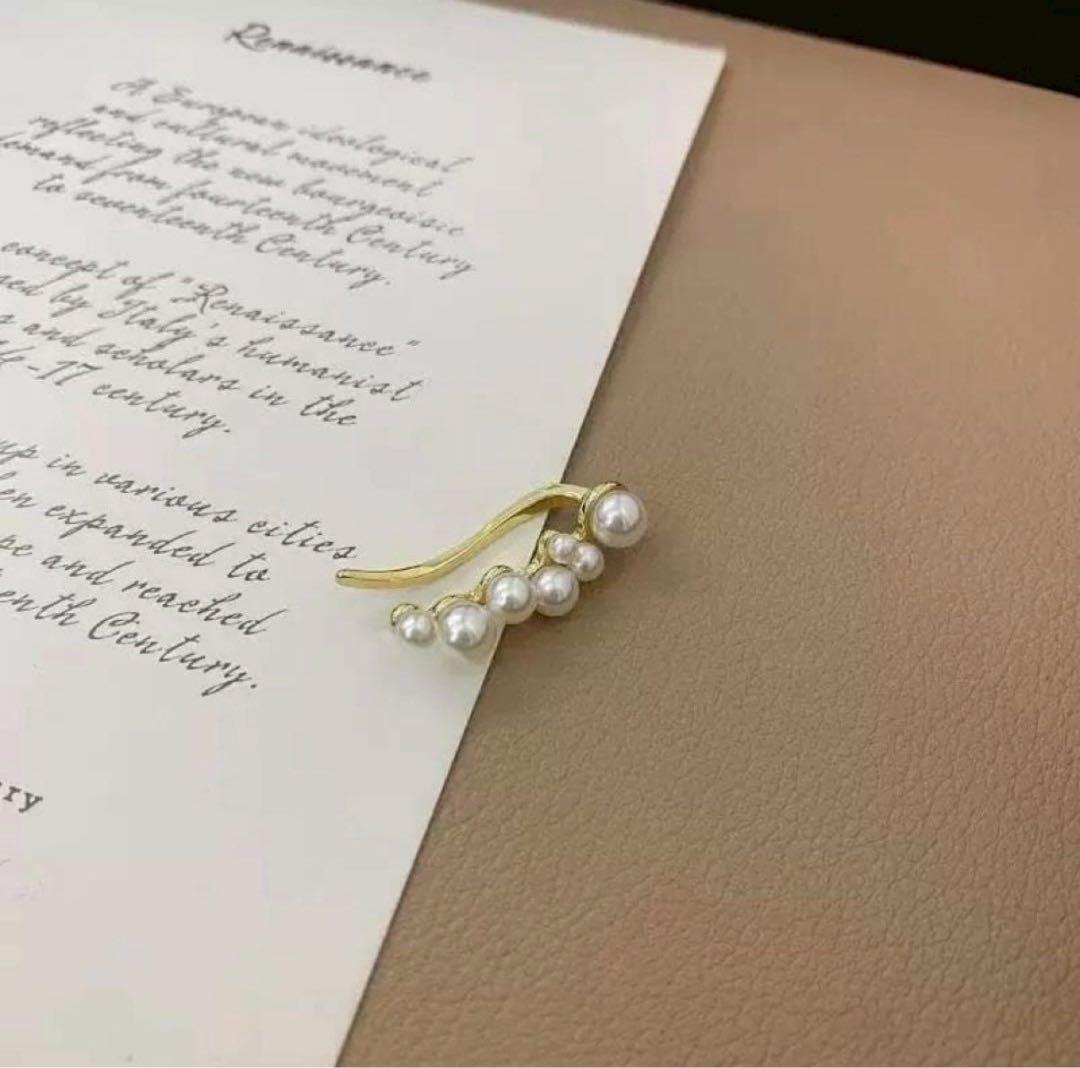 Renaissance
A European ideological
and cultural movement
reflecting the new bourgeoisie
demand from fourteenth Century
to seventeenth Century.
concept of "Renaissance"
by Italy's humanist
and scholars in the
-17 century.
up in various cities
expanded to
and reached
Century.